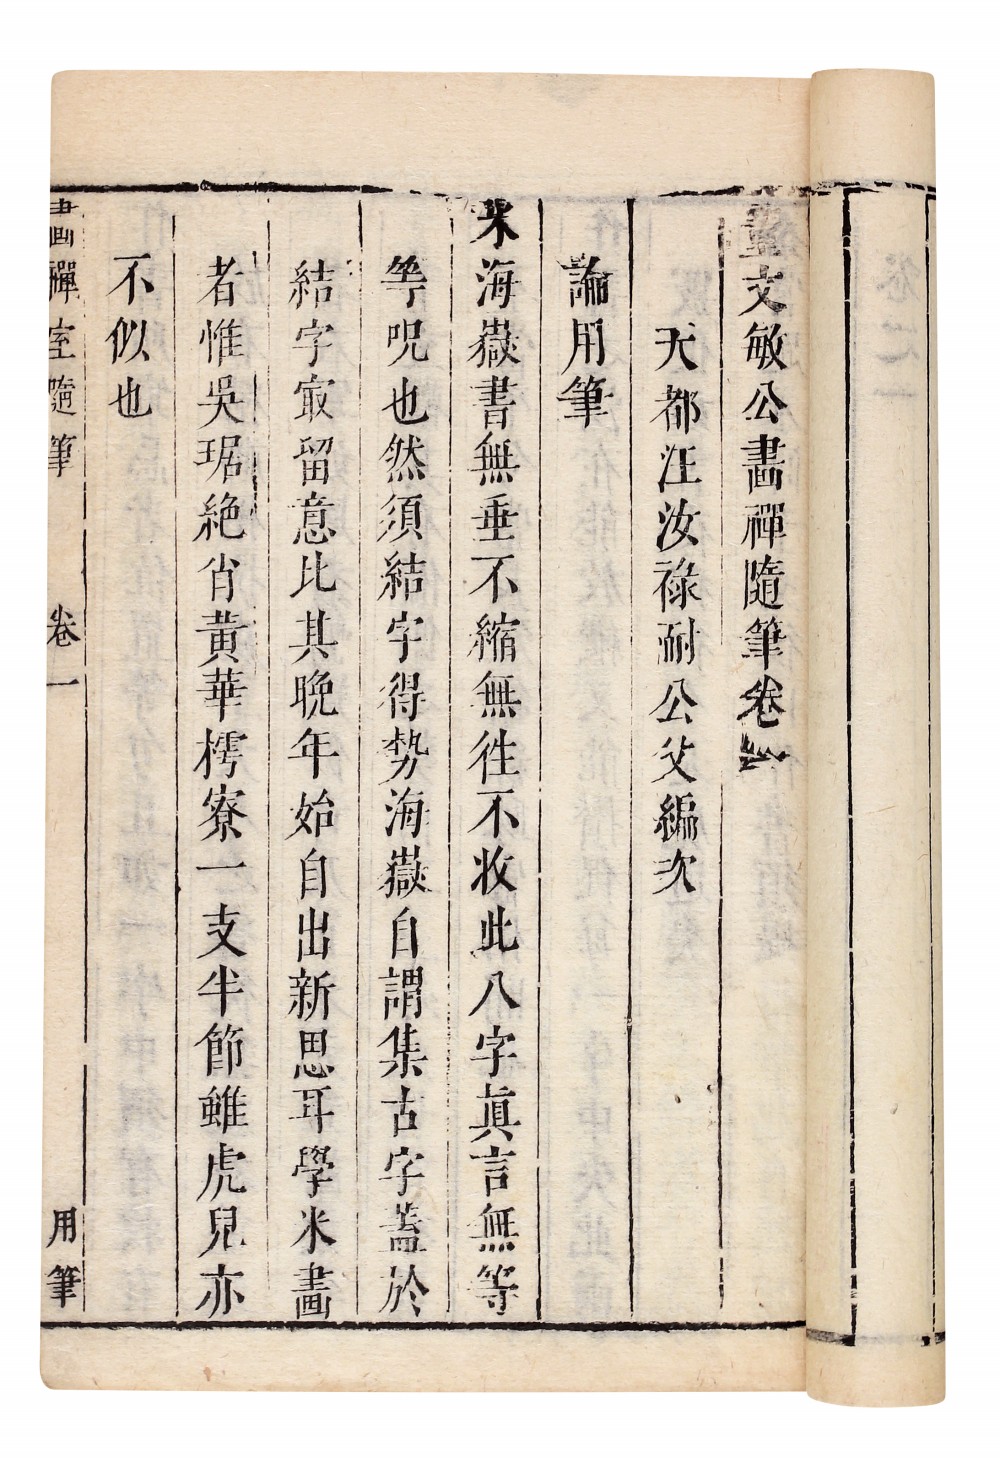 董文敏公畫禪隨筆卷之一
天都汪汝祿耐公父編次
論用筆
米海嶽書無垂不縮無徃不收此八字眞言無等
等呪也然須結字得勢海嶽自謂集古字蓋於
結字㝡留意比其晚年始自出新思耳學米畫
者惟吳琚絶肖黃華樗寮一支半節雖虎兒亦
不似也
畫禪室隨筆 卷一 用筆